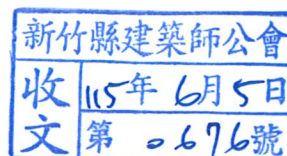 新竹縣建築師公會
收文
115年6月5日
第0676號